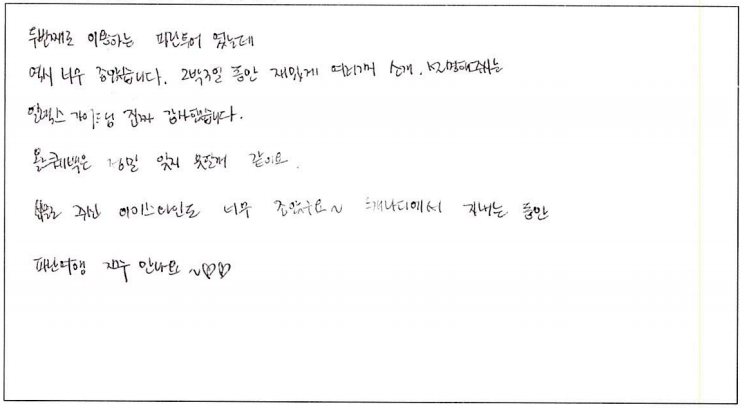 두번째로 이용하는 파란투어 였는데
역시 너무 좋았습니다. 2박3일 동안 재밌게 여러가지 소개, 설명해주시는
알렉스 가이드님 진짜 감사했습니다.
올드퀘벡은 정말 잊지 못할꺼 같아요.
주신 아이스와인도 너무 좋았구요~ 캐나다에서 지내는 동안
파란여행 자주 만나요 ~♡♡